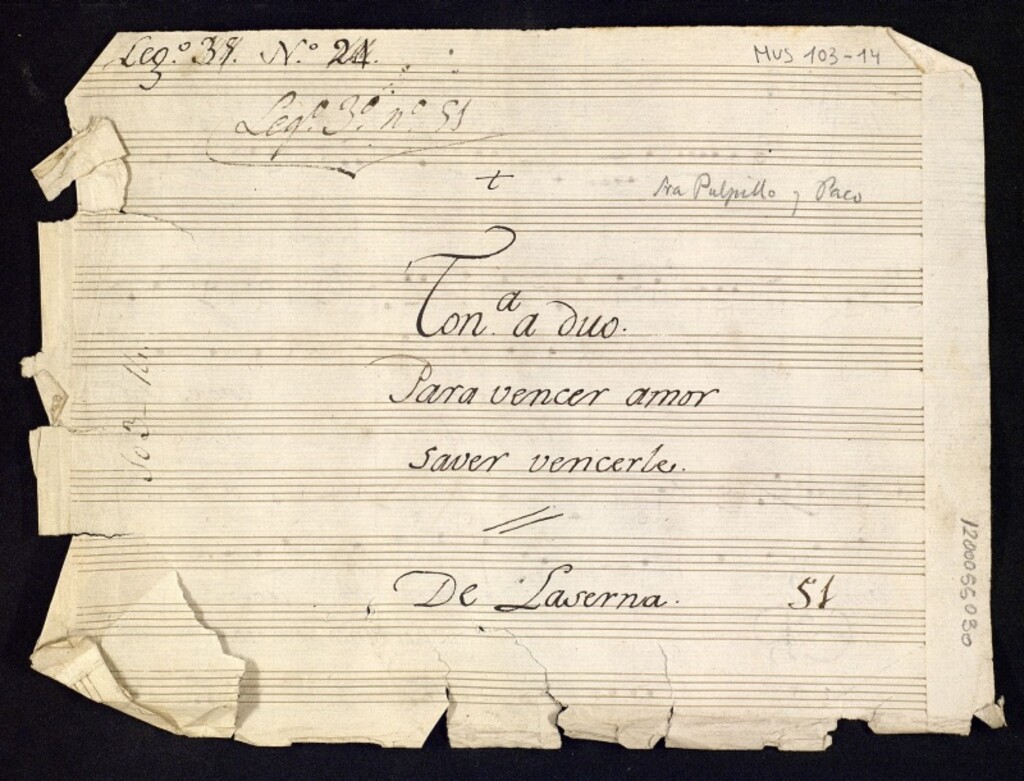 Leg.º 38. N.º 24.
MUS 103-14
Leg.º 3.º n.º 51
+
Sra Pulpillo y Paco
Ton.ª a duo.
Para vencer amor
saver vencerle.
De Laserna. 51
103-14.
1200055030